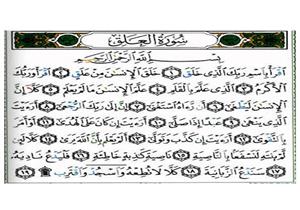 سورة العلق
بسم الله الرحمن الرحيم
اقرأ باسم ربك الذي خلق ١ خلق الإنسن من علق ٢ اقرأ وربك
الأكرم ٣ الذي علم بالقلم ٤ علم الإنسن ما لم يعلم ٥ كلا إن
الإنسن ليطغى ٦ أن رءاه استغنى ٧ إن إلى ربك الرجعى ٨ أرءيت
الذي ينهى ٩ عبدا إذا صلى ١٠ أرءيت إن كان على الهدى ١١ أو أمر
بالتقوى ١٢ أرءيت إن كذب وتولى ١٣ ألم يعلم بأن الله يرى ١٤ كلا لئن
لم ينته لنسفعا بالناصية ١٥ ناصية كذبة خاطئة ١٦ فليدع ناديه
١٧ سندع الزبانية ١٨ كلا لا تطعه واسجد واقترب ١٩